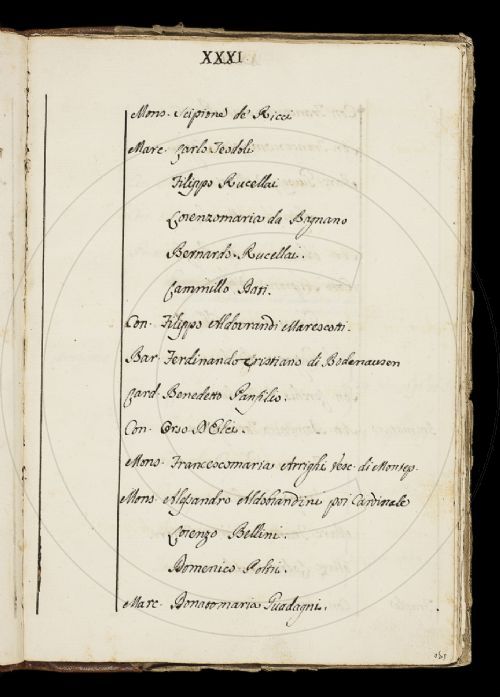 XXXI
Mons. Scipione de Ricci
Marc. Carlo Teodoli
Filippo Rucellai
Lorenzomaria da Bagnano
Bernardo Rucellai.
Cammillo Bati.
Con. Filippo Aldovrandi Marescotti.
Bar. Ferdinando Cristiano di Bodenausen
Card. Benedetto Panfilio.
Con. Orso D'Elci.
Mons. Francescomaria Arrighi Vesc. di Montep.
Mons. Alessandro Aldobrandini poi Cardinale
Lorenzo Bellini.
Domenico
Marc. Donatomaria Guadagni.